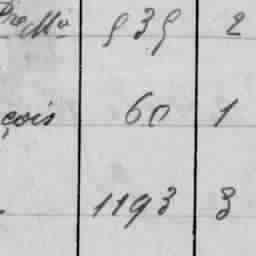 Pre Ma 939 2
çois 60 1
1193 3